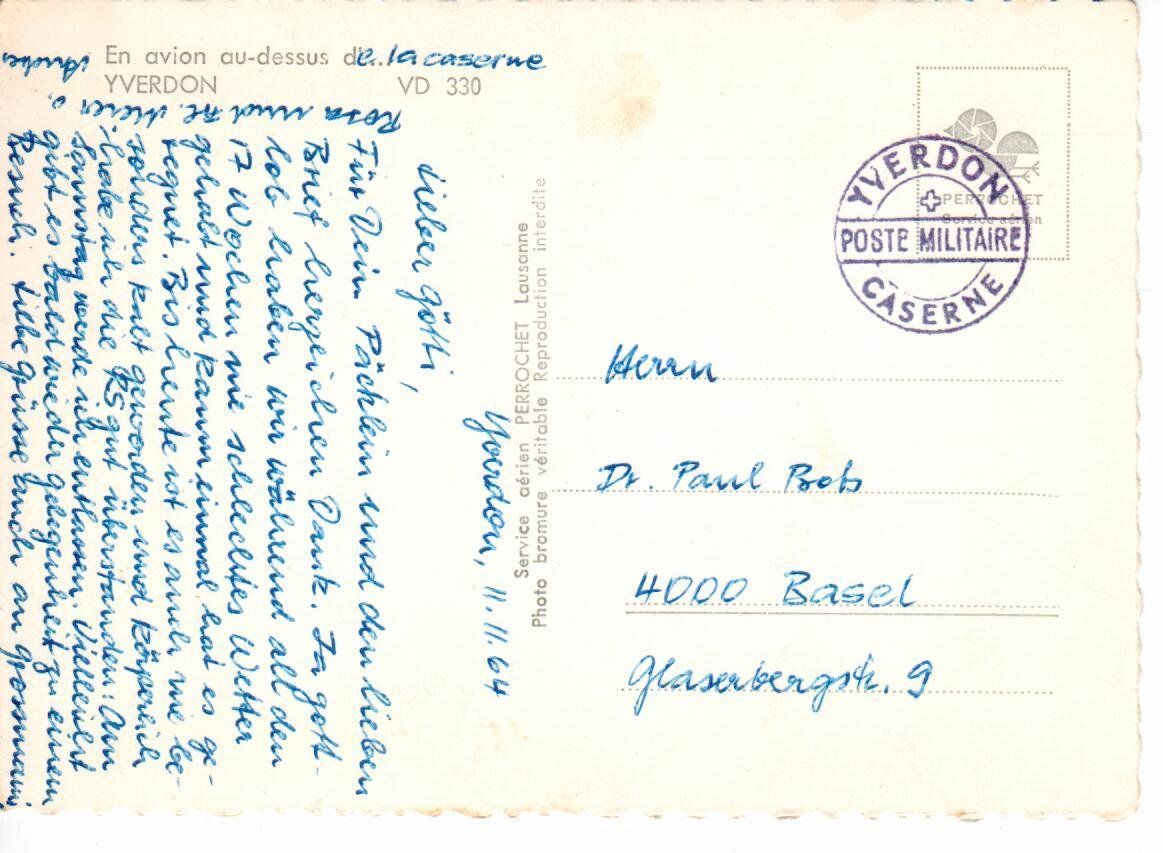 En avion au-dessus de la caserne
YVERDON VD 330
PERROCHET
Service aérien
YVERDON
POSTE MILITAIRE
CASERNE
Service aérien PERROCHET Lausanne
Photo bromure véritable Reproduction interdite
Yverdon, 11.11.64
Lieber Götti,
Für Dein Päcklein und den lieben
Brief herzlichen Dank. Ja gott-
lob haben wir während all den
17 Wochen nie schlechtes Wetter
gehabt und kaum einmal hat es ge-
regnet. Bis heute ist es auch nie be-
sonders kalt geworden und körperlich
habe ich die RS gut überstanden! Am
Samstag werde ich entlassen. Vielleicht
gibt es bald wieder Gelegenheit zu einem
Besuch. Liebe Grüsse auch an Grossmami
Rosa und
Herrn
Dr. Paul Bobs
4000 Basel
Glaserbergstr. 9